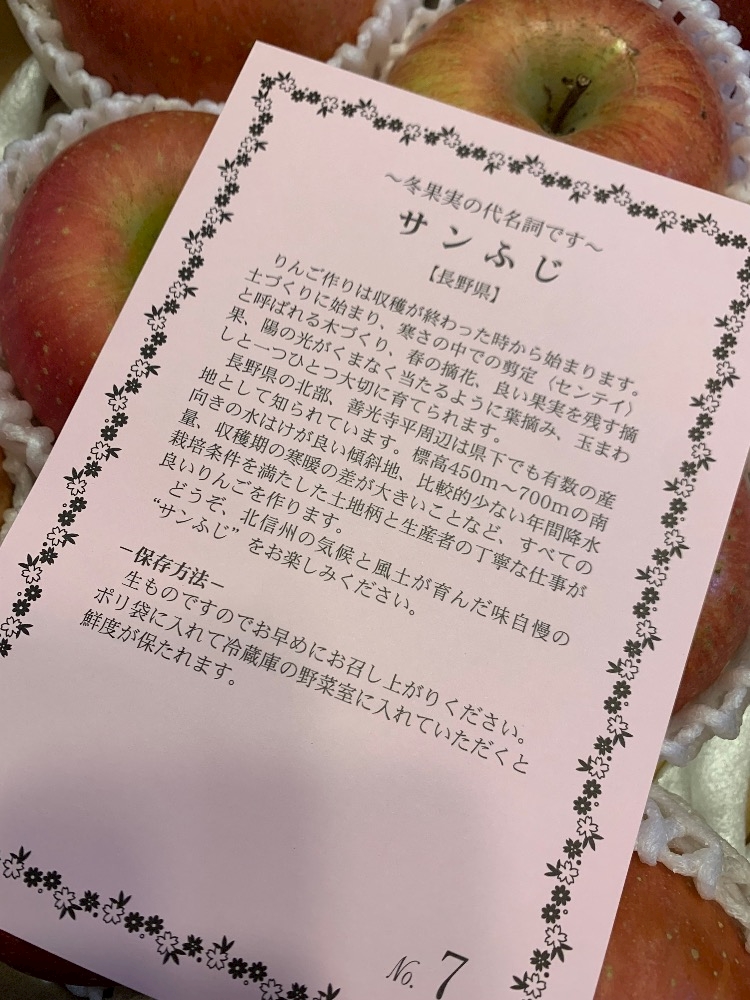 ～冬果実の代名詞です～
サンふじ
【長野県】
りんご作りは収穫が終わった時から始まります。
土づくりに始まり、寒さの中での剪定（センテイ）
と呼ばれる木づくり、春の摘花、良い果実を残す摘
果、陽の光がくまなく当たるように葉摘み、玉まわ
しと一つひとつ大切に育てられます。
長野県の北部、善光寺平周辺は県下でも有数の産
地として知られています。標高450m～700mの南
向きの水はけが良い傾斜地、比較的少ない年間降水
量、収穫期の寒暖の差が大きいことなど、すべての
栽培条件を満たした土地柄と生産者の丁寧な仕事が
良いりんごを作ります。
どうぞ、北信州の気候と風土が育んだ味自慢の
“サンふじ”をお楽しみください。
－保存方法－
生ものですのでお早めにお召し上がりください。
ポリ袋に入れて冷蔵庫の野菜室に入れていただくと
鮮度が保たれます。
No. 7